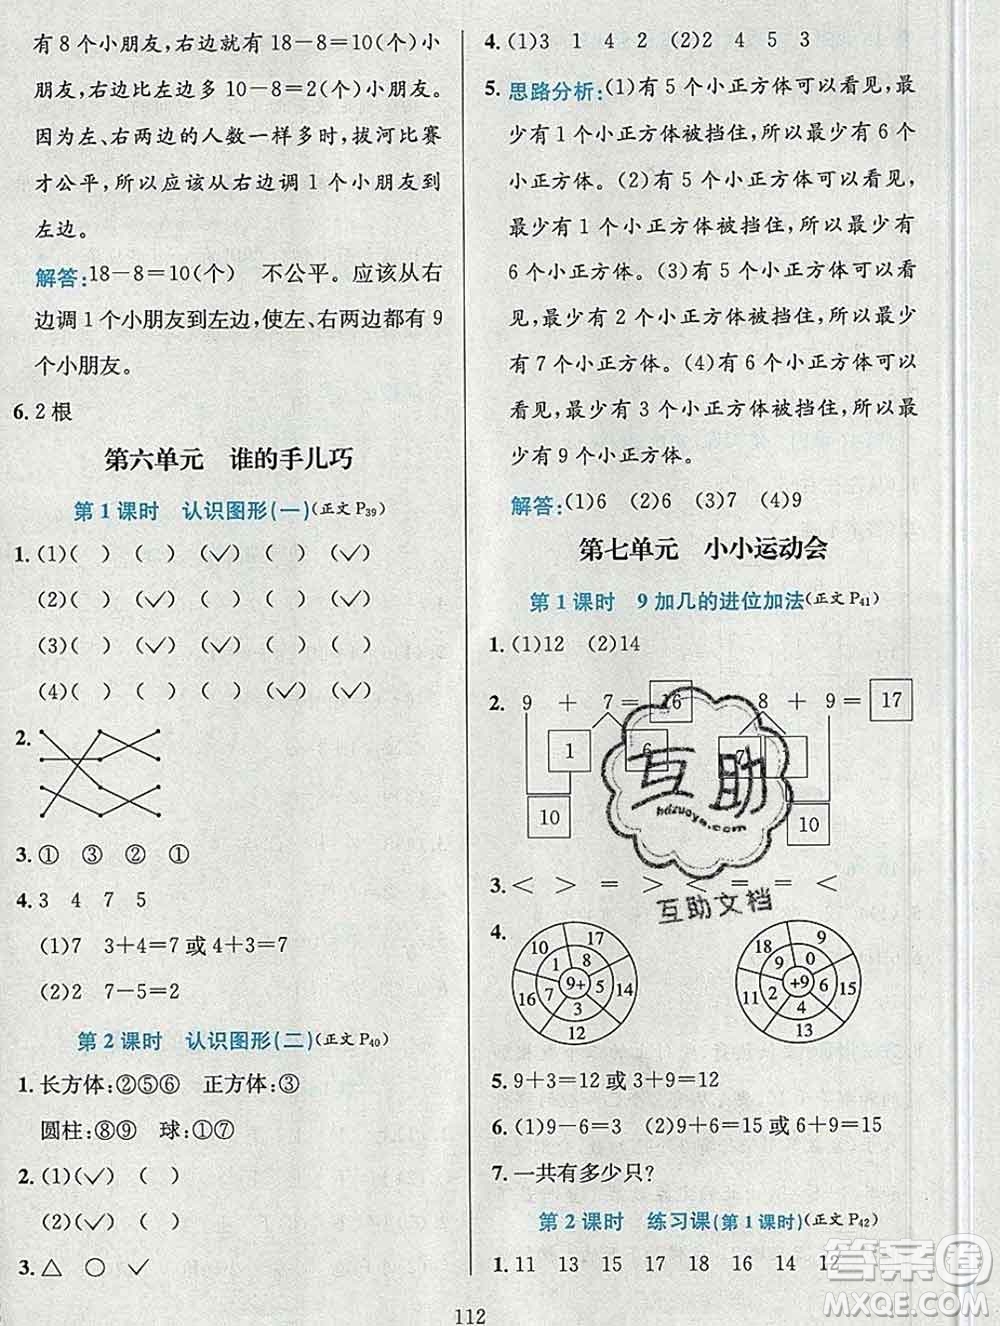 有8个小朋友,右边就有18-8=10(个)小
朋友,右边比左边多10-8=2(个)小朋友。
因为左、右两边的人数一样多时,拔河比赛
才公平,所以应该从右边调1个小朋友到
左边。
解答:18-8=10(个) 不公平。应该从右
边调1个小朋友到左边,使左、右两边都有9
个小朋友。
6.2根
第六单元 谁的手儿巧
第1课时 认识图形(一)(正文P39)
1.(1)( ) ( ) (✓) (✓) ( )
(2)( ) (✓) ( ) ( ) (✓)
(3)( ) (✓) (✓) ( ) ( )
(4)( ) ( ) ( ) (✓) (✓)
2.
3.① ③ ② ①
4.3 4 7 5
(1)7 3+4=7或4+3=7
(2)2 7-5=2
第2课时 认识图形(二)(正文P40)
1.长方体:②⑤⑥ 正方体:③
圆柱:⑧⑨ 球:①⑦
2.(1)(✓) ( ) ( )
(2)(✓) ( ) ( )
3.△ ○ ✓
4.(1)3 1 4 2 (2)2 4 5 3
5.思路分析:(1)有5个小正方体可以看见,最
少有1个小正方体被挡住,所以最少有6个
小正方体。(2)有5个小正方体可以看见,
最少有1个小正方体被挡住,所以最少有
6个小正方体。(3)有5个小正方体可以看
见,最少有2个小正方体被挡住,所以最少
有7个小正方体。(4)有6个小正方体可以
看见,最少有3个小正方体被挡住,所以最少
有9个小正方体。
解答:(1)6 (2)6 (3)7 (4)9
第七单元 小小运动会
第1课时 9加几的进位加法(正文P41)
1.(1)12 (2)14
2. 9 + 7=16 8+9=17
1 6 7
10 10
3.< > = > < = = <
4.
10 17 15 14 13 12 16
1 8 6 5 3 7 9+
18 9 15 17 12 16 11
9 0 6 8 3 7 2 +9
14
5.9+3=12或3+9=12
6.(1)9-6=3 (2)9+6=15或6+9=15
7.一共有多少只?
第2课时 练习课(第1课时)(正文P42)
1.11 13 13 15 18 14 12
112
互助
hdzuoye.com
互助文档
答案圈
MXQE.COM